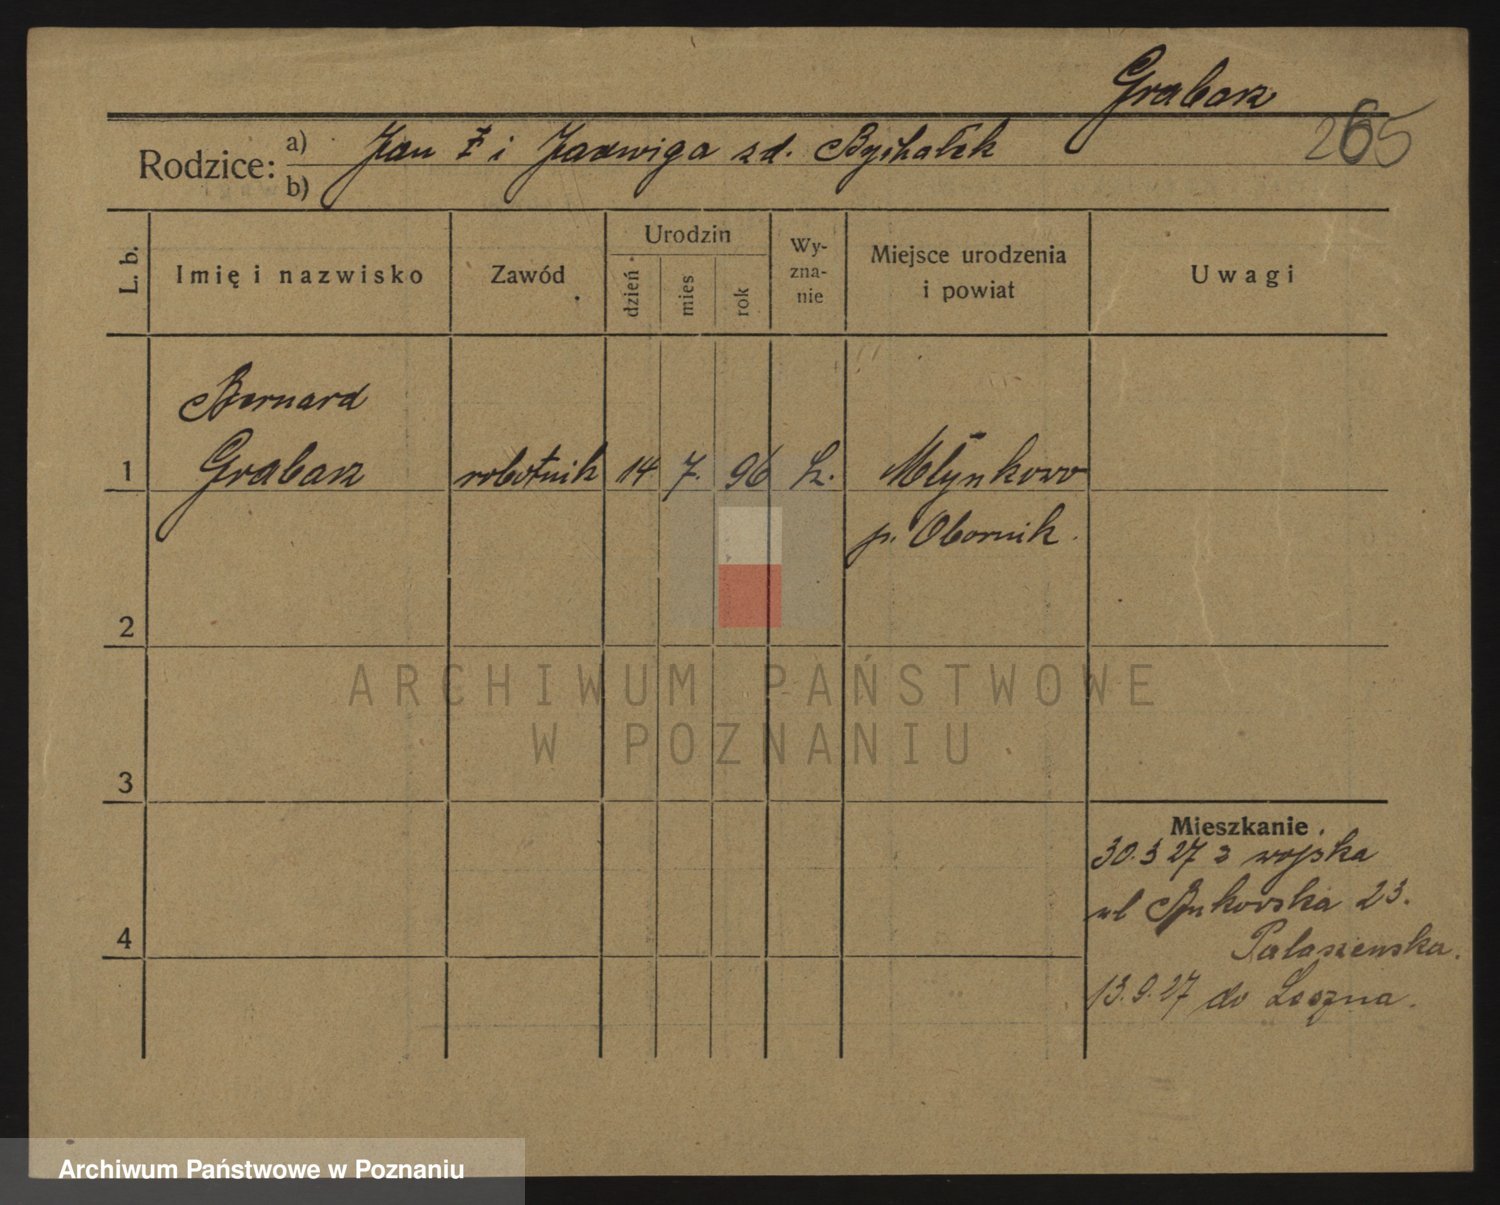 Grabarz
265
Rodzice: a) Jan ‡ i Jadwiga zd.
b)
L. b.
Imię i nazwisko
Zawód
Urodzin
dzień
mies
rok
Wy-
zna-
nie
Miejsce urodzenia
i powiat
Uwagi
Bernard
1 Grabarz robotnik 14 7. 96 k. Młynkowo
p. Obornik.
2
ARCHIWUM PAŃSTWOWE
W POZNANIU
3
Mieszkanie.
30.3 27 z wojska
ul Bukowska 23.
4
13.9.27 do
Archiwum Państwowe w Poznaniu